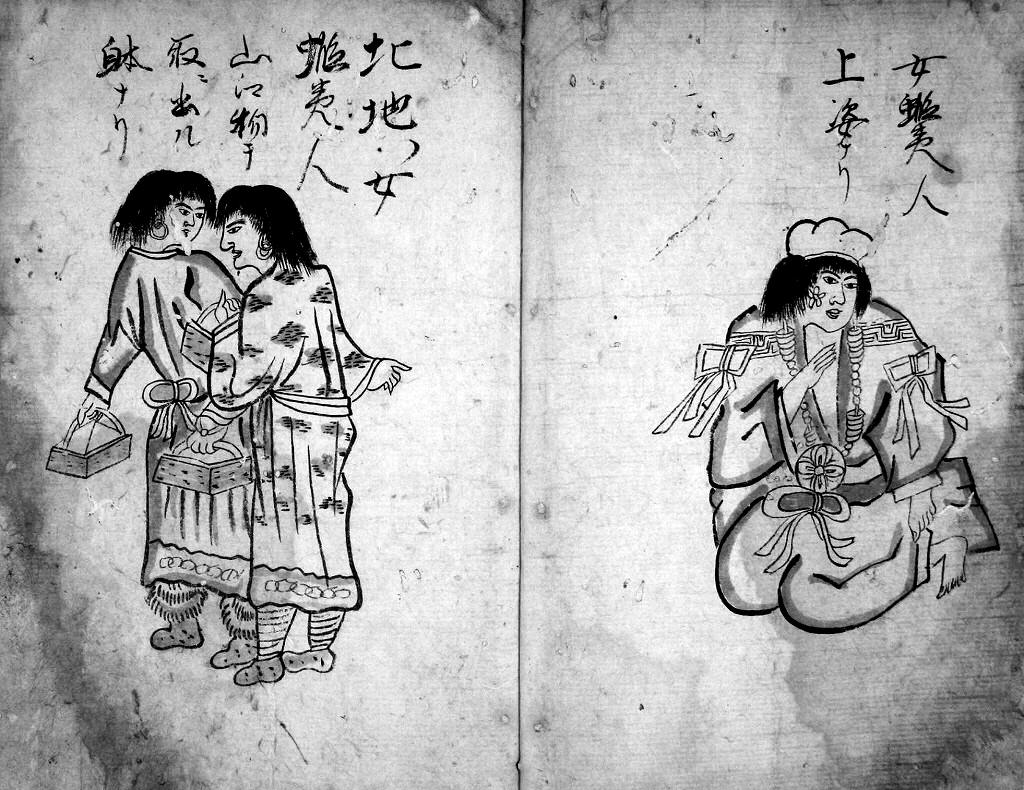 女蝦夷人
上姿ナリ
北地ノ女
蝦夷人
山江物ヲ
取ニ出ル
躰ナリ